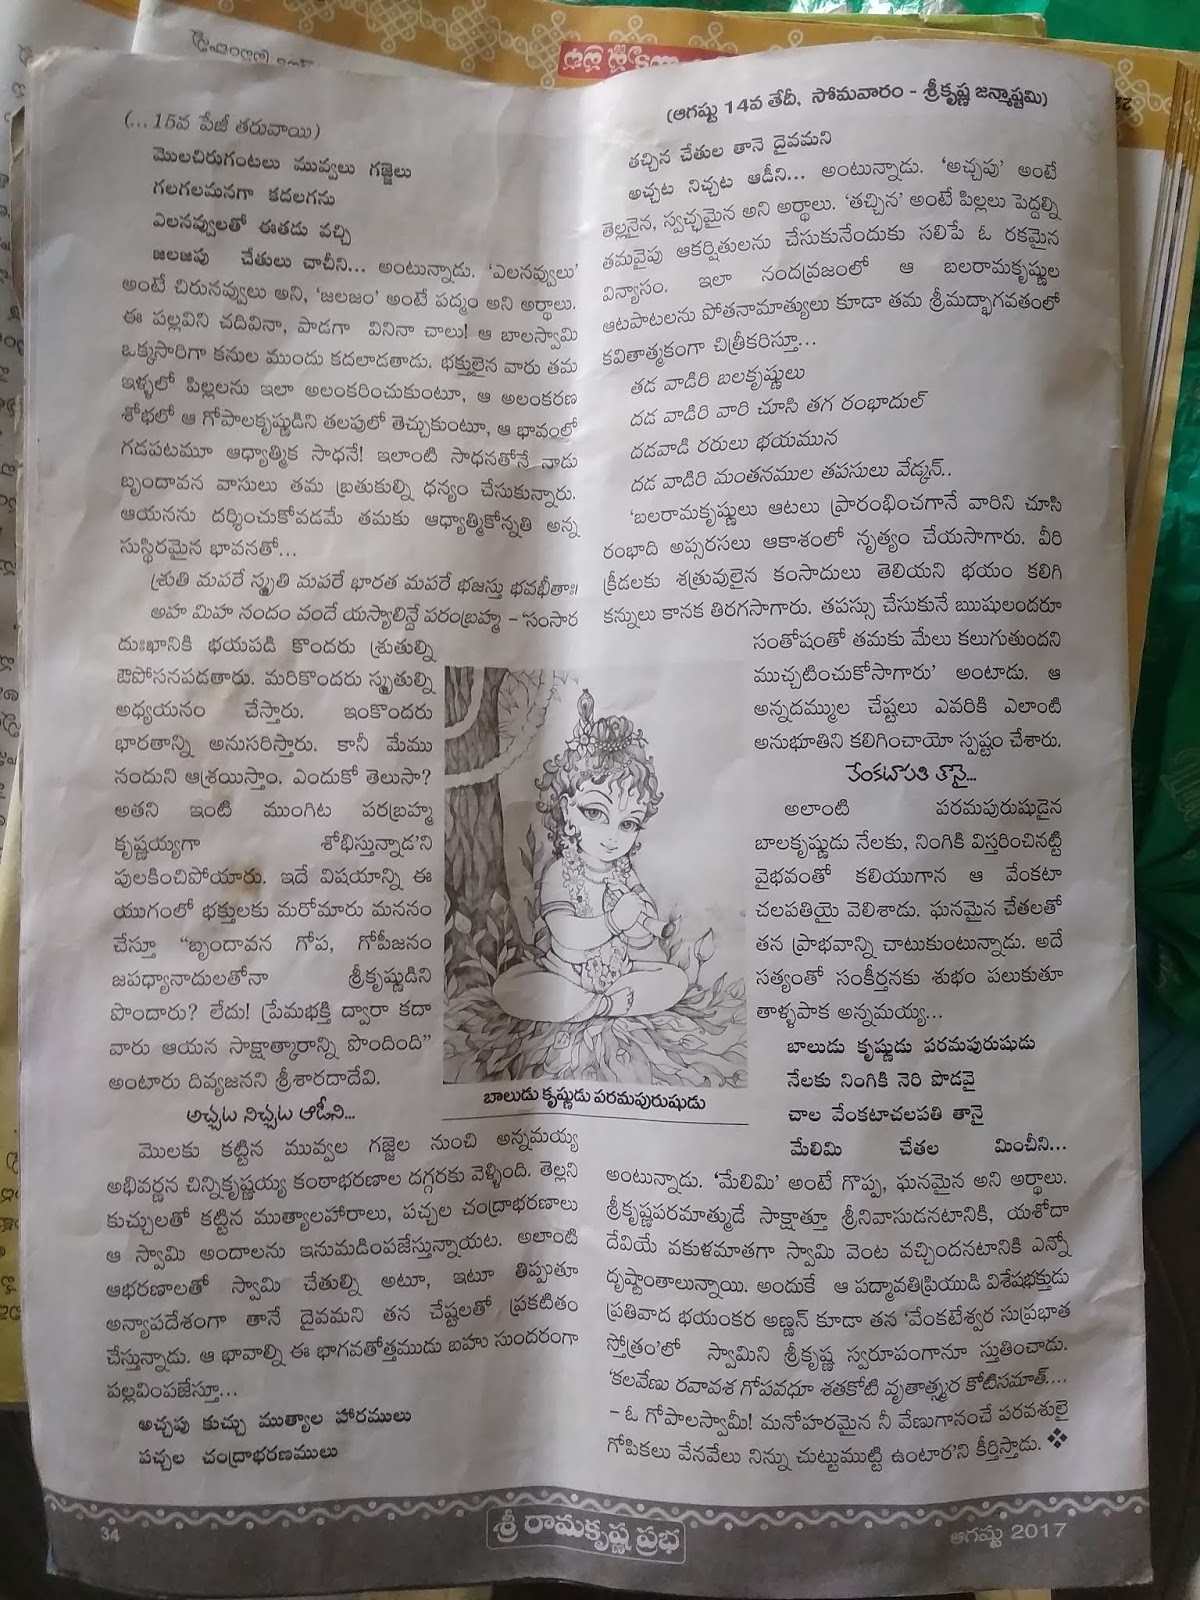 (ఆగష్టు 14వ తేదీ, సోమవారం - శ్రీకృష్ణ జన్మాష్టమి)
(...15వ పేజీ తరువాయి)
మొలచిరుగంటలు మువ్వలు గజ్జెలు
గలగలమనగా కదలగను
ఎలనవ్వులతో ఈతడు వచ్చి
జలజపు చేతులు చాచీని... అంటున్నాడు. ‘ఎలనవ్వులు’
అంటే చిరునవ్వులు అని, ‘జలజం’ అంటే పద్మం అని అర్థాలు.
ఈ పల్లవిని చదివినా, పాడగా వినినా చాలు! ఆ బాలస్వామి
ఒక్కసారిగా కనుల ముందు కదలాడతాడు. భక్తులైన వారు తమ
ఇళ్ళలో పిల్లలను ఇలా అలంకరించుకుంటూ, ఆ అలంకరణ
శోభలో ఆ గోపాలకృష్ణుడిని తలపులో తెచ్చుకుంటూ, ఆ భావంలో
గడపటమూ ఆధ్యాత్మిక సాధనే! ఇలాంటి సాధనతోనే నాడు
బృందావన వాసులు తమ బ్రతుకుల్ని ధన్యం చేసుకున్నారు.
ఆయనను దర్శించుకోవడమే తమకు ఆధ్యాత్మికోన్నతి అన్న
సుస్థిరమైన భావనతో...
శ్రుతి మపరే స్మృతి మపరే భారత మపరే భజస్తు భవభీతాః।
అహ మిహ నందం వందే యస్యాలిన్దే పరంబ్రహ్మ – ‘సంసార
దుఃఖానికి భయపడి కొందరు శ్రుతుల్ని
ఔపోసనపడతారు. మరికొందరు స్మృతుల్ని
అధ్యయనం చేస్తారు. ఇంకొందరు
భారతాన్ని అనుసరిస్తారు. కానీ మేము
నందుని ఆశ్రయిస్తాం. ఎందుకో తెలుసా?
అతని ఇంటి ముంగిట పరబ్రహ్మ
కృష్ణయ్యగా శోభిస్తున్నాడ’ని
పులకించిపోయారు. ఇదే విషయాన్ని ఈ
యుగంలో భక్తులకు మరోమారు మననం
చేస్తూ “బృందావన గోప, గోపీజనం
జపధ్యానాదులతోనా శ్రీకృష్ణుడిని
పొందారు? లేదు! ప్రేమభక్తి ద్వారా కదా
వారు ఆయన సాక్షాత్కారాన్ని పొందింది”
అంటారు దివ్యజనని శ్రీశారదాదేవి.
అచ్చట నిచ్చట ఆడీని...
మొలకు కట్టిన మువ్వల గజ్జెల నుంచి అన్నమయ్య
అభివర్ణన చిన్నికృష్ణయ్య కంఠాభరణాల దగ్గరకు వెళ్ళింది. తెల్లని
కుచ్చులతో కట్టిన ముత్యాలహారాలు, పచ్చల చంద్రాభరణాలు
ఆ స్వామి అందాలను ఇనుమడింపజేస్తున్నాయట. అలాంటి
ఆభరణాలతో స్వామి చేతుల్ని అటూ, ఇటూ తిప్పుతూ
అన్యాపదేశంగా తానే దైవమని తన చేష్టలతో ప్రకటితం
చేస్తున్నాడు. ఆ భావాల్ని ఈ భాగవతోత్తముడు బహు సుందరంగా
పల్లవింపజేస్తూ...
అచ్చపు కుచ్చు ముత్యాల హారములు
పచ్చల చంద్రాభరణములు
తచ్చిన చేతుల తానె దైవమని
అచ్చట నిచ్చట ఆడీని... అంటున్నాడు. ‘అచ్చపు’ అంటే
తెల్లనైన, స్వచ్ఛమైన అని అర్థాలు. ‘తచ్చిన’ అంటే పిల్లలు పెద్దల్ని
తమవైపు ఆకర్షితులను చేసుకునేందుకు సలిపే ఓ రకమైన
విన్యాసం. ఇలా నందవ్రజంలో ఆ బలరామకృష్ణుల
ఆటపాటలను పోతనామాత్యులు కూడా తమ శ్రీమద్భాగవతంలో
కవితాత్మకంగా చిత్రీకరిస్తూ...
తడ వాడిరి బలకృష్ణులు
దడ వాడిరి వారి చూసి తగ రంభాదుల్
దడవాడి రరులు భయమున
దడ వాడిరి మంతనముల తపసులు వేడ్కన్..
‘బలరామకృష్ణులు ఆటలు ప్రారంభించగానే వారిని చూసి
రంభాది అప్సరసలు ఆకాశంలో నృత్యం చేయసాగారు. వీరి
క్రీడలకు శత్రువులైన కంసాదులు తెలియని భయం కలిగి
కన్నులు కానక తిరగసాగారు. తపస్సు చేసుకునే ఋషులందరూ
సంతోషంతో తమకు మేలు కలుగుతుందని
ముచ్చటించుకోసాగారు’ అంటాడు. ఆ
అన్నదమ్ముల చేష్టలు ఎవరికి ఎలాంటి
అనుభూతిని కలిగించాయో స్పష్టం చేశారు.
వేంకటాపతి తానై...
అలాంటి పరమపురుషుడైన
బాలకృష్ణుడు నేలకు, నింగికి విస్తరించినట్టి
వైభవంతో కలియుగాన ఆ వేంకటా
చలపతియై వెలిశాడు. ఘనమైన చేతలతో
తన ప్రాభవాన్ని చాటుకుంటున్నాడు. అదే
సత్యంతో సంకీర్తనకు శుభం పలుకుతూ
తాళ్ళపాక అన్నమయ్య...
బాలుడు కృష్ణుడు పరమపురుషుడు
నేలకు నింగికి నెరి పొడవై
చాల వేంకటాచలపతి తానై
మేలిమి చేతల మించీని...
అంటున్నాడు. ‘మేలిమి’ అంటే గొప్ప, ఘనమైన అని అర్థాలు.
శ్రీకృష్ణపరమాత్ముడే సాక్షాత్తూ శ్రీనివాసుడనటానికి, యశోదా
దేవియే వకుళమాతగా స్వామి వెంట వచ్చిందనటానికి ఎన్నో
దృష్టాంతాలున్నాయి. అందుకే ఆ పద్మావతిప్రియుడి విశేషభక్తుడు
ప్రతివాద భయంకర అణ్ణన్ కూడా తన ‘వేంకటేశ్వర సుప్రభాత
స్తోత్రం’లో స్వామిని శ్రీకృష్ణ స్వరూపంగానూ స్తుతించాడు.
‘కలవేణు రవావశ గోపవధూ శతకోటి వృతాత్స్మర కోటిసమాత్....
– ఓ గోపాలస్వామీ! మనోహరమైన నీ వేణుగానంచే పరవశులై
గోపికలు వేనవేలు నిన్ను చుట్టుముట్టి ఉంటార’ని కీర్తిస్తాడు. ❖
బాలుడు కృష్ణుడు పరమపురుషుడు
34
శ్రీ రామకృష్ణ ప్రభ
ఆగష్టు 2017